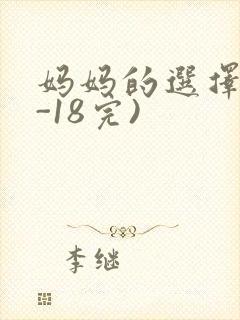 妈妈的選擇
-18完)
李继